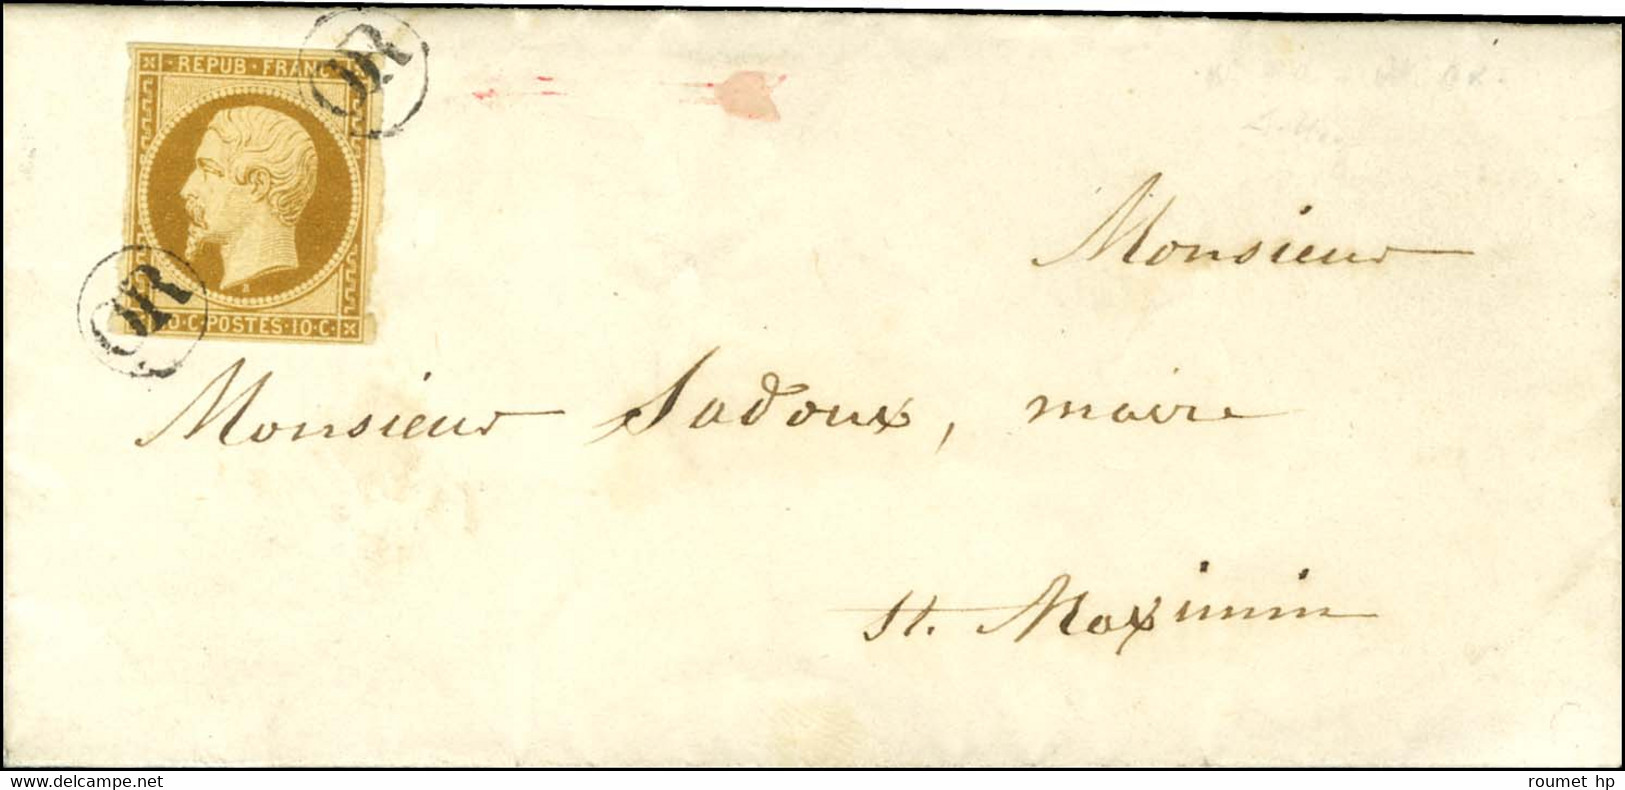 OR
REPUB · FRANC
OR
10 · C · POSTES · 10 · C ·
Monsieur
Monsieur Sadoux, maire
St. Maximin
www.delcampe.net
roumet hp